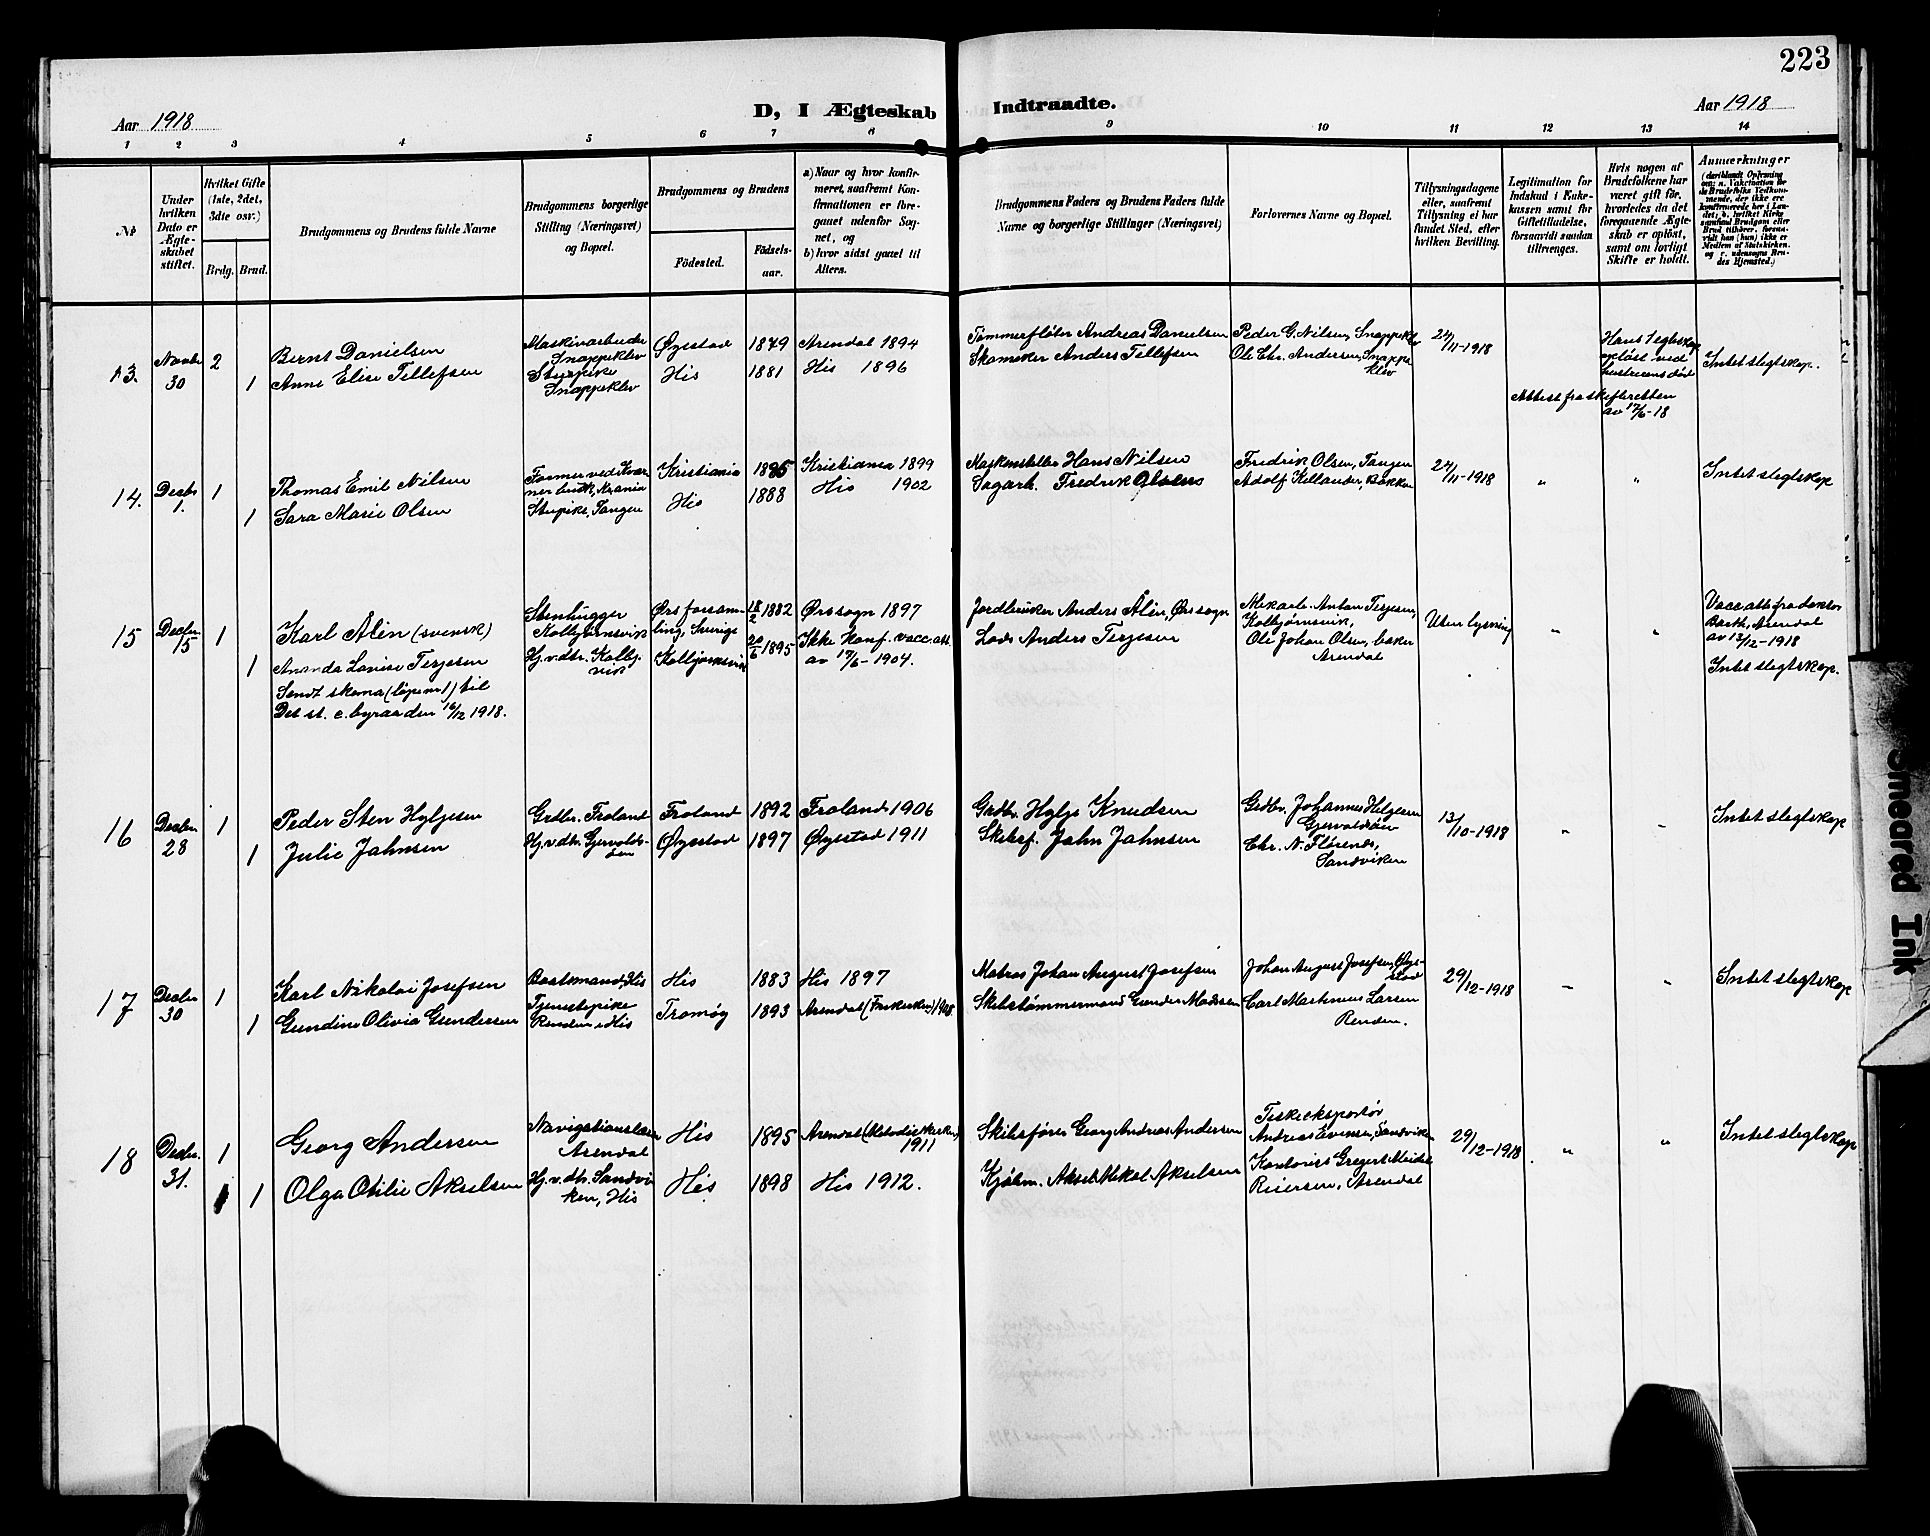 223
Aar 1918
D, I Ægteskab Indtraadte.
Aar 1918
1 2 3 4 5 6 7 8 9 10 11 12 13 14
№
Under hvilken Dato er Ægteskabet stiftet.
Hvilket Gifte (1ste, 2det, 3die osv.)
Brdg. Brud.
Brudgommens og Brudens fulde Navne
Brudgommens borgerlige Stilling (Næringsvei) og Bopæl.
Brudgommens og Brudens
Födested.
Födselsaar.
a) Naar og hvor konfirmeret, saafremt Konfirmationen er foregaaet udenfor Sognet, og
b) hvor sidst gaaet til Alters.
Brudgommens Faders og Brudens Faders fulde Navne og borgerlige Stillinger (Næringsvei)
Forlovernes Navne og Bopæl.
Tillysningsdagene eller, saafremt Tillysning ei har fundet Sted, efter hvilken Bevilling.
Legitimation for Indskud i Enkekassen samt for Giftetilladelse, forsaavidt saadan tiltrænges.
Hvis nogen af Brudefolkene har været gift før, hvorledes da det foregaaende Ægteskab er oplöst, samt om lovligt Skifte er holdt.
Anmærkninger
13. Novbr 30 2 Bernt Danielsen Maskinarbeider Snappeklev Øyestad 1879 Arendal 1894 Tømmerfløter Andreas Danielsen Peder G. Nilsen, Snappeklev 24/11-1918 Hans 1 egteskap opløst ved hustruens død Intet slegtskap.
1 Anne Elise Tellefsen Stuepike Snappeklev His 1881 His 1896 Skomaker Anders Tellefsen Ole Chr. Andersen, Snappeklev
Attest fra skifteretten av 17/6-18
14. Desbr 1. 1 Thomas Emil Nilsen Kristiania 1885 Kristiania 1899 Hans Nilsen Fredrik Olsen, Tangen 24/11-1918 „ „ Intet slegtskap
1 Sara Marie Olsen Stupike, Tangen His 1888 His 1902 Sagarb. Fredrik Olsen Adolf Kellander, Bakken
15 Desbr. 15 1 Karl Ålin (svensk) Stenhugger Kolbjørnsvik Ørs forsamling, Sverige 18/2 1882 Ørs sogn 1897 Jordbruker Anders Ålin, Ørs sogn Mikael Anton Terjesen, Kolbjørnsvik, Uten lysning „ „ Vacc.att fra doktor Barth, Arendal av 13/12-1918
1 Amanda Lovise Terjesen Hj.v.dtr. Kolbj.vik Kolbjørnsvik 20/6 1895 Ikke konf. vacc.att. av 17/6-1904. Lods Anders Terjesen Ole Johan Olsen, baker Arendal Intet slegtskap.
Sendt skema (løpenr 1) til
Det st. c. byraa den 16/12 1918.
16 Desbr. 28 1 Peder Sten Hylgesen Grdbr. Froland Froland 1892 Froland 1906 Grdbr. Hylge Knudsen Grdbr. Johannes Helgesen Gjervoldsøen 13/10-1918 „ „ Intet slegtskap
1 Julie Jahnsen Hj.v.dtr. Gjervoldsøen Øyestad 1897 Øyestad 1911 Skibsf. Jahn Jahnsen Chr. N. Flørenæs, Sandviken
17 Desbr 30 1 Karl Nikolai Josefsen Baatsmand, His His 1883 His 1897 Matros Johan August Josefsen Johan August Josefsen, Øyestad 29/12-1918 „ „ Intet slegtskap
1 Gundine Olivia Gundersen Tjenestepike Renden i His Tromøy 1893 Arendal (Frikirken) 1908 Skibstømmermand Gunder Madssen Carl Martinius Larsen Renden.
18 Desbr. 31. 1 Georg Andersen Navigationslærer Arendal His 1895 Arendal (Metodistkirken) 1911 Skibsfører Georg Andreas Andersen Fiskeeksportør Andreas Evensen, Sandviken 29/12-1918 „ „ Intet slegtskap
1 Olga Otilie Akselsen Hj.v.dtr. Sandviken, His His 1898 His 1912. Kjøbm. Aksel Mikal Akselsen Kontorist Gregert Meidel Reiersen, Arendal
Smeared Ink